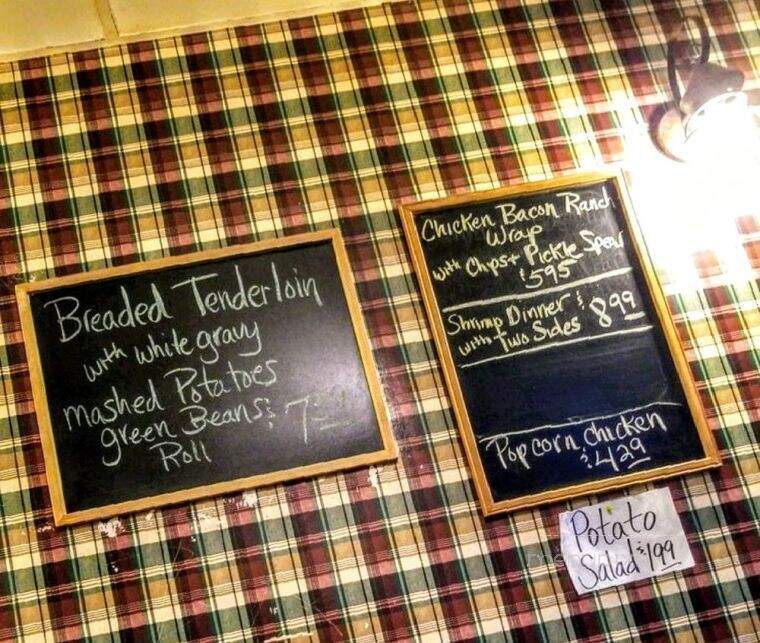 Breaded Tenderloin
with white gravy
mashed Potatoes
green Beans
Roll
Chicken Bacon Ranch
Wrap
with Chips + Pickle Spear
$595
Shrimp Dinner $899
with Two Sides
Popcorn Chicken
$429
Potato
Salad $199